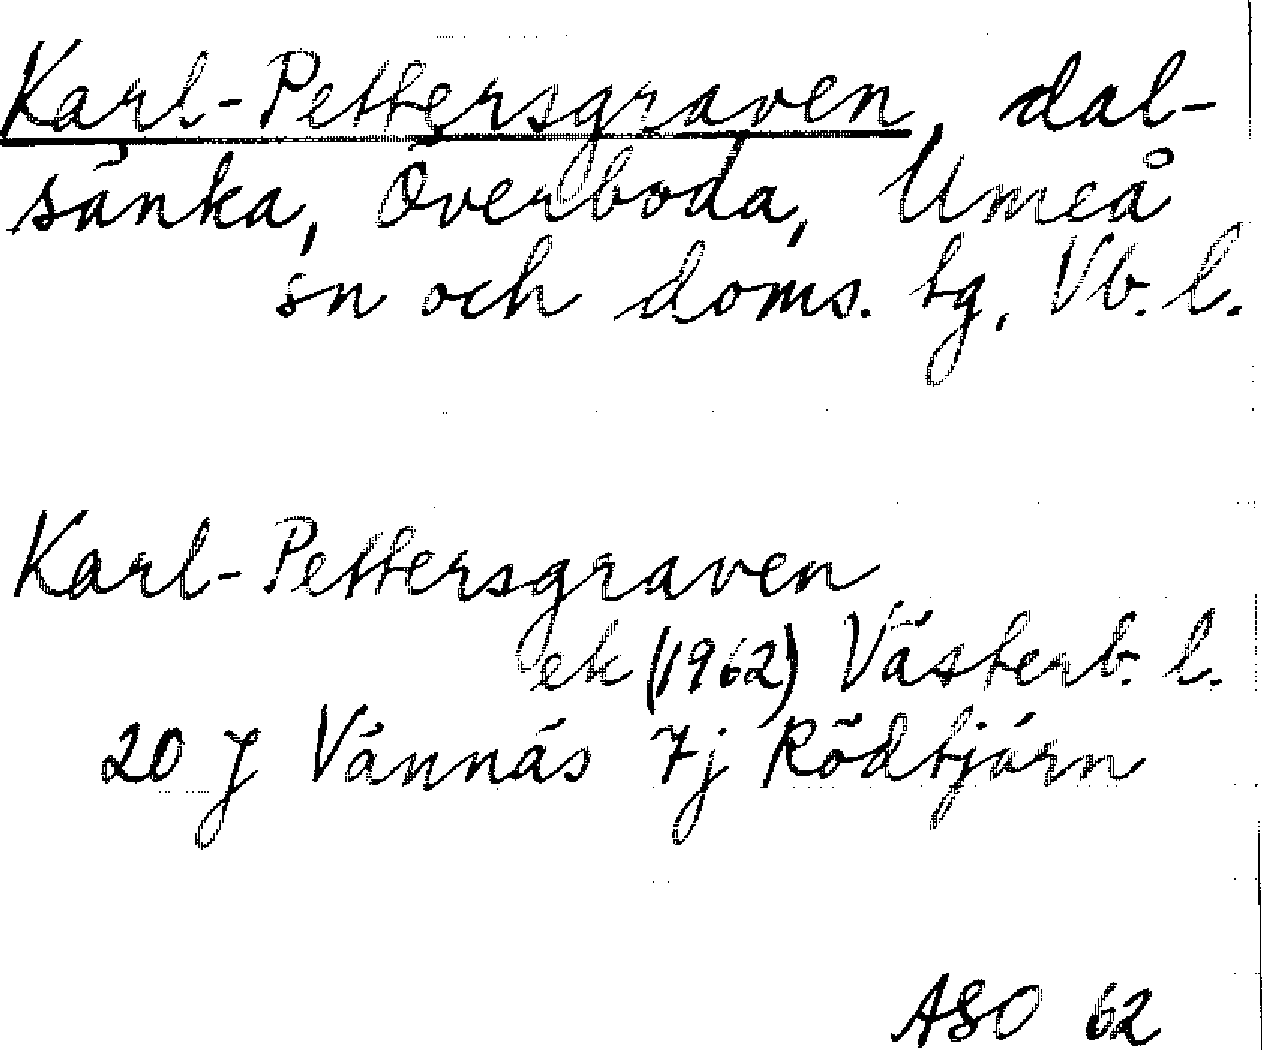 Karl-Pettersgraven, dal-
sänka, Överboda, Umeå
sn och doms. tg, Vb. l.
Karl-Pettersgraven
ek (1962) Västerb. l.
20 J Vännäs 7j Rödtjärn
ASO 62